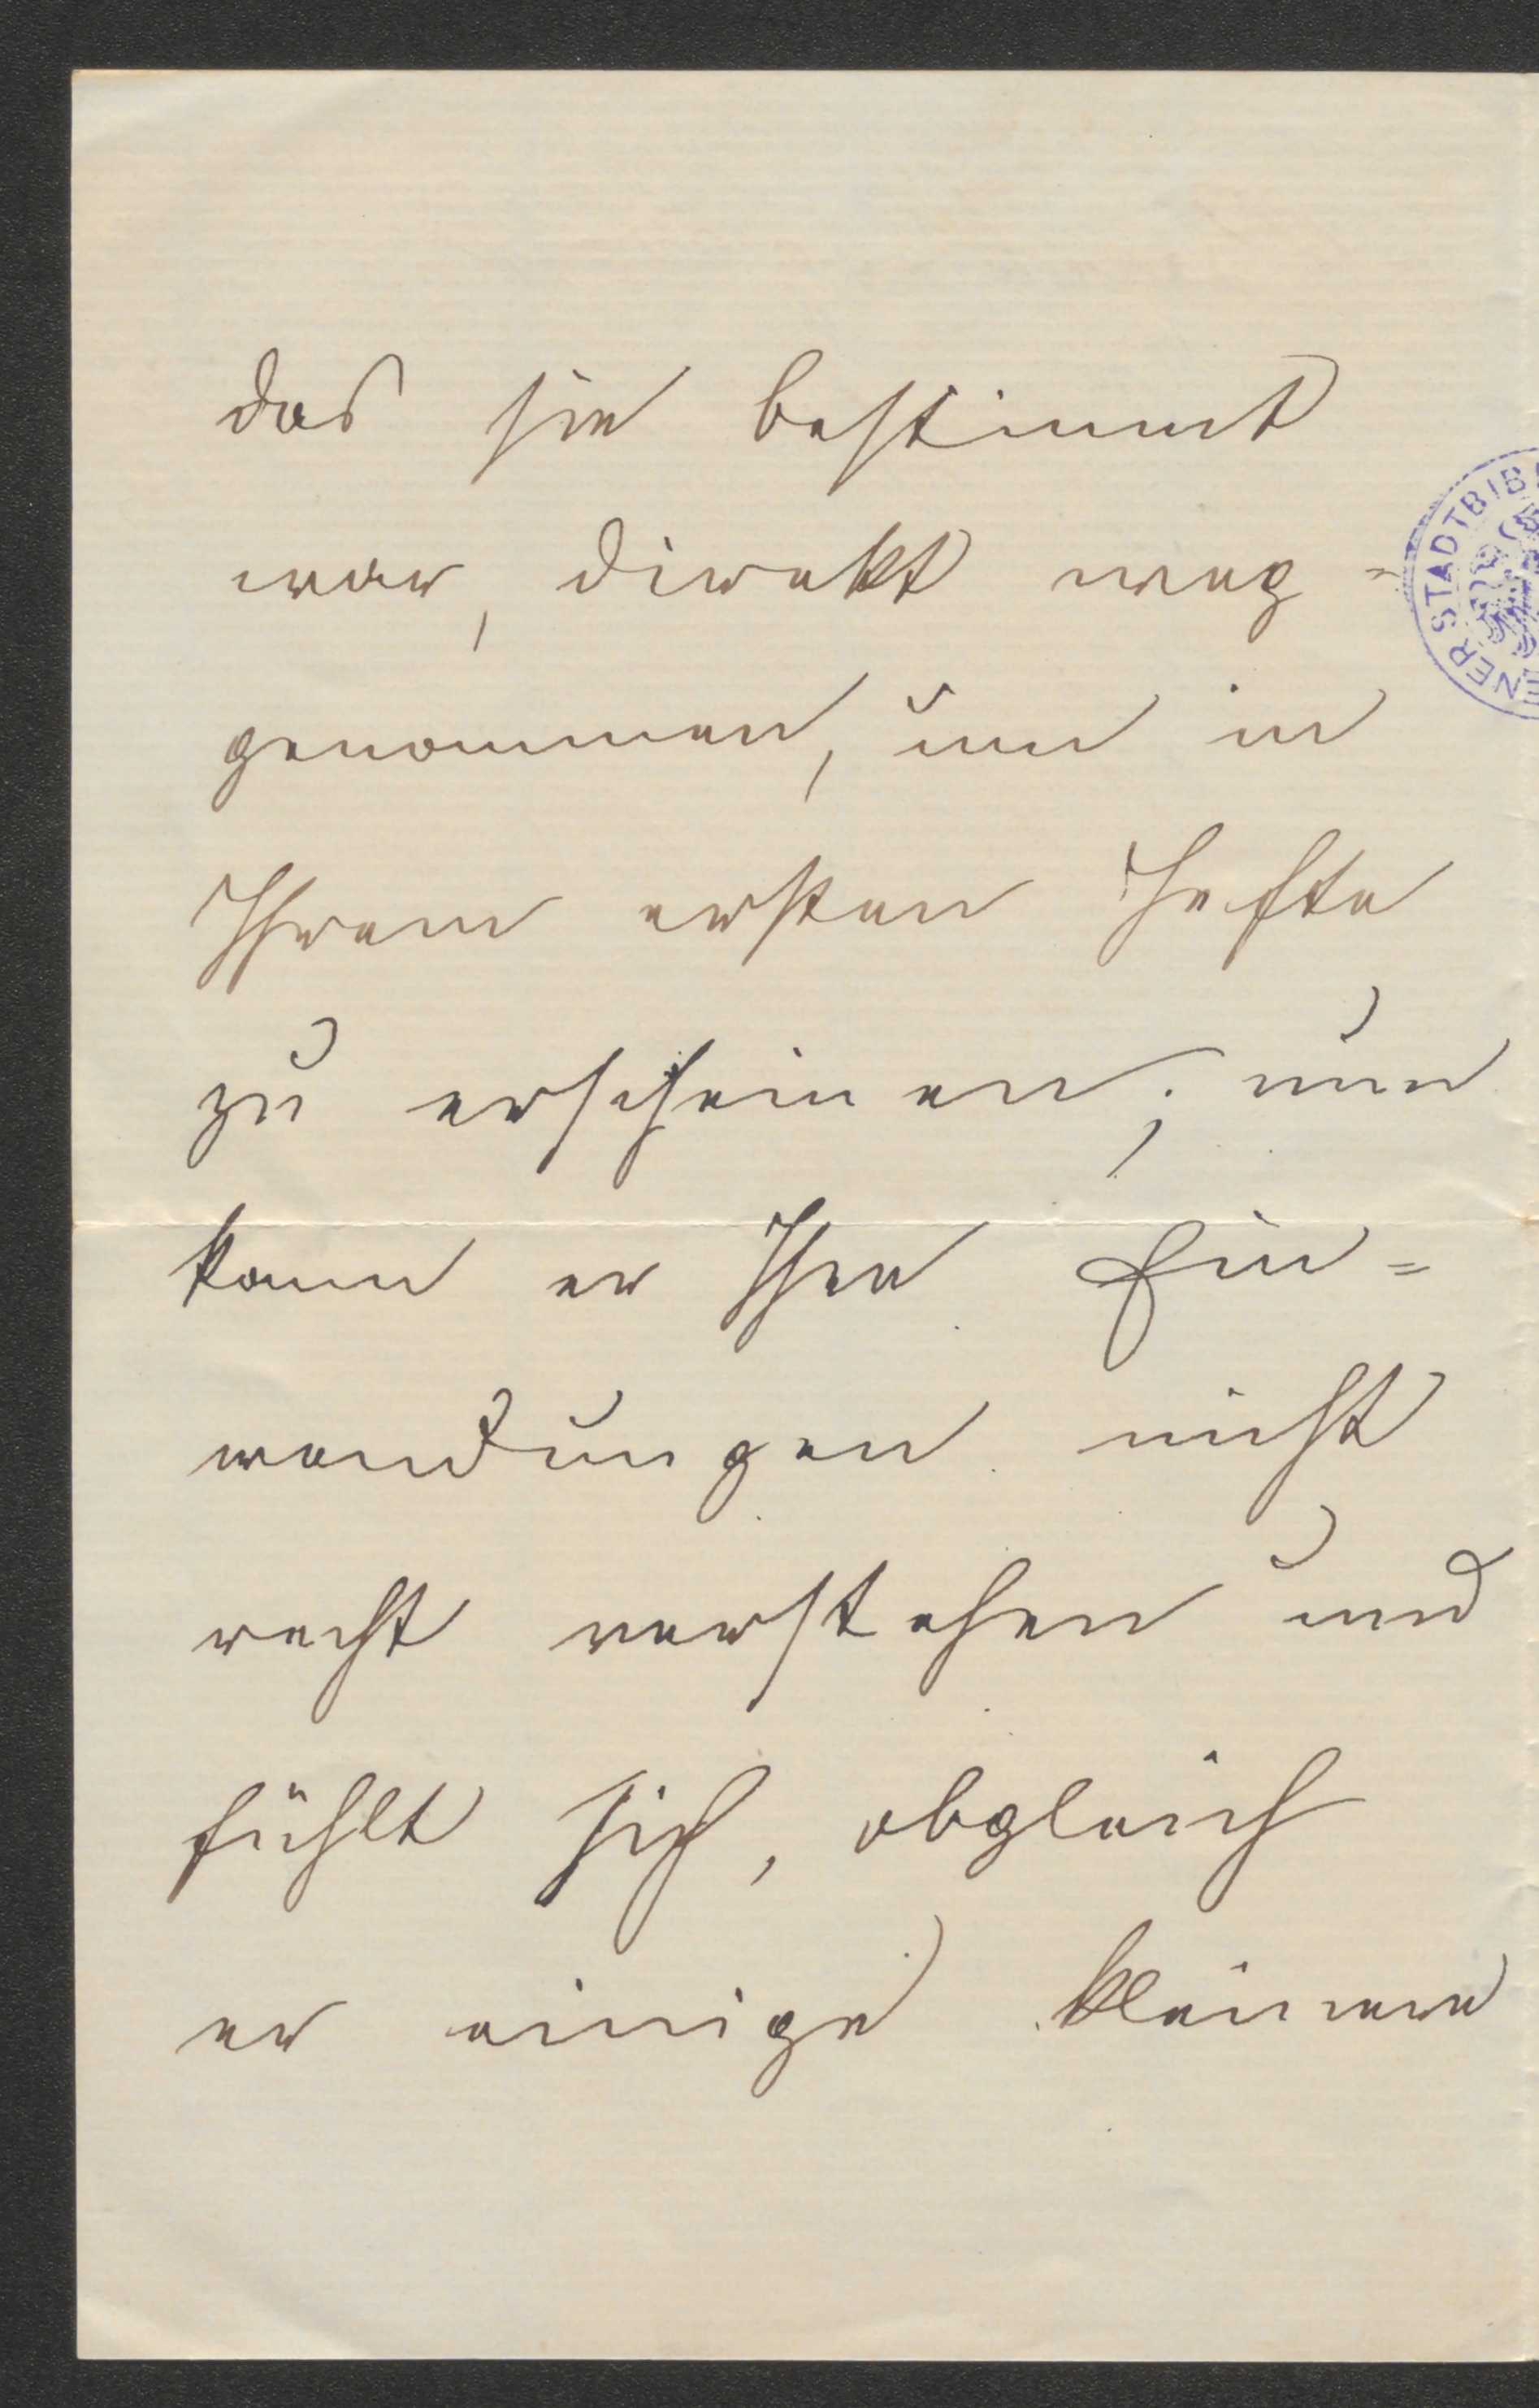 das sie bestimmt
war, direkt weg-
genommen, um in
Ihrem ersten Hefte
zu erscheinen; nun
kann er Ihre Ein=
wendungen nicht
recht verstehen und
fühlt sich, obgleich
er einige kleinere
ENER STADTBIB